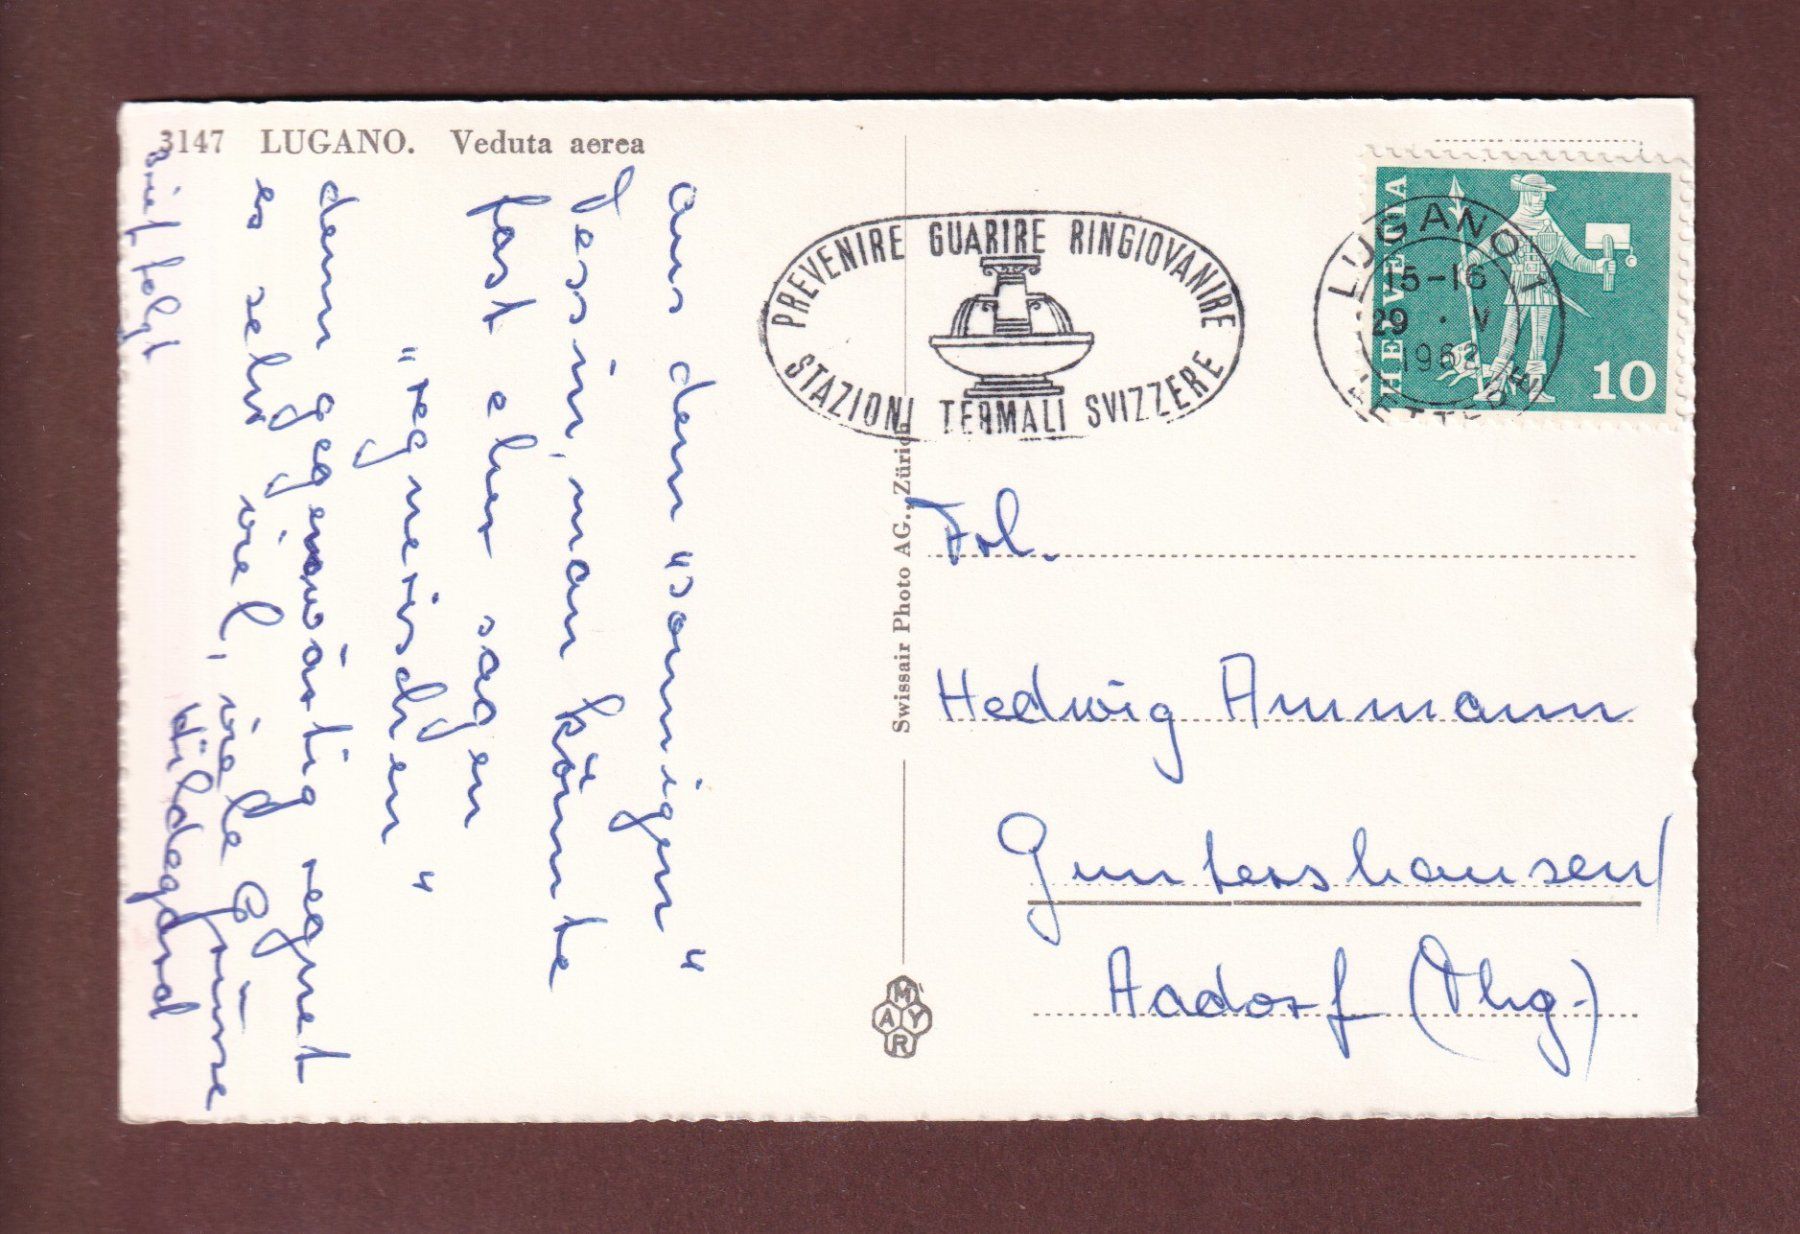 3147 LUGANO. Veduta aerea
aus dem "sonnigen"
Tessin, man könnte
fast eher sagen
"regnerischen"
denn gegenwärtig regnet
es sehr viel, viele Grüsse
Hildegard
Brief folgt
PREVENIRE GUARIRE RINGIOVANIRE
STAZIONI TERMALI SVIZZERE
LUGANO 1
15-16
29 · V
1962
HELVETIA
10
Swissair Photo AG., Zürich
MAYR
Frl.
Hedwig Ammann
Guntershausen/
Aadorf (Thg.)